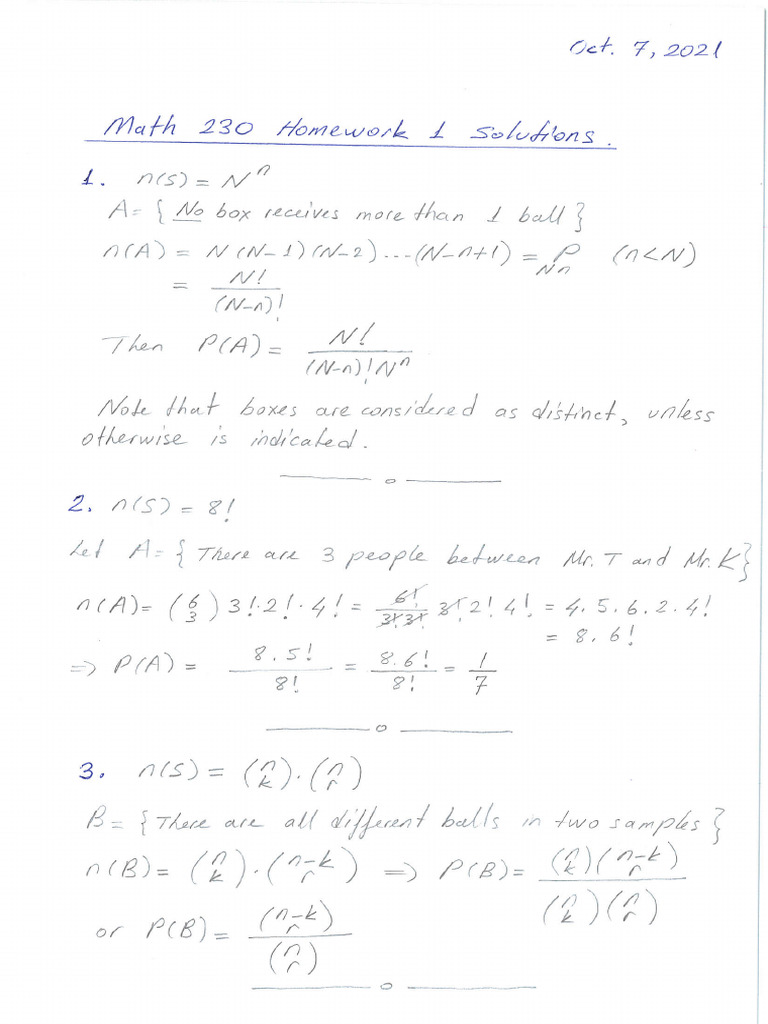 Oct. 7, 2021
Math 230 Homework 1 Solutions.
1. n(S) = N^n
A = { No box receives more than 1 ball }
n(A) = N(N-1)(N-2)...(N-n+1) = P_Nn (n<N)
= N! / (N-n)!
Then P(A) = N! / (N-n)! N^n
Note that boxes are considered as distinct, unless
otherwise is indicated.
2. n(S) = 8!
Let A = { There are 3 people between Mr. T and Mr. K }
n(A) = (6 3) 3! · 2! · 4! = 6! / 3! 3! 3! 2! 4! = 4 . 5 . 6 . 2 . 4!
= 8 . 6!
=> P(A) = 8 . 5! / 8! = 8 . 6! / 8! = 1 / 7
3. n(S) = (n k) · (n r)
B = { There are all different balls in two samples }
n(B) = (n k) · (n-k r) => P(B) = (n k)(n-k r) / (n k)(n r)
or P(B) = (n-k r) / (n r)